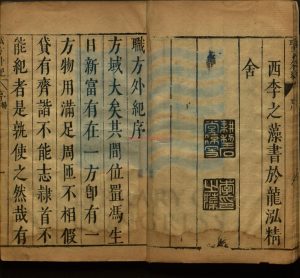 西李之藻書於龍泓精
舍
職方外紀序
方域大矣其間位置馮生
日新富有在一方卽有一
方物用滿足周匝不相假
貸有齊諧不能志隷首不
能紀者是孰使之然哉有